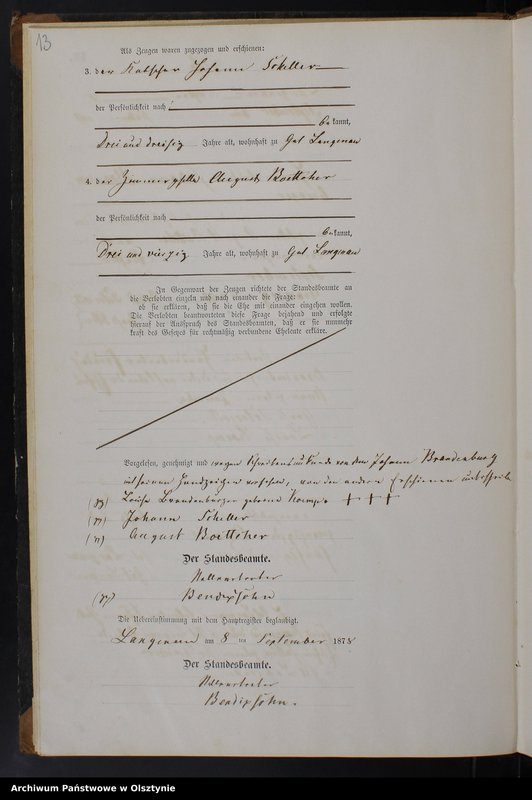 13
Als Zeugen waren zugezogen und erschienen:
3. der Kutscher Johann Schiller
der Persönlichkeit nach
bekannt,
Drei und dreißig Jahre alt, wohnhaft zu Gut Langenau
4. der Zimmergeselle August Boettcher
der Persönlichkeit nach
bekannt,
Drei und vierzig Jahre alt, wohnhaft zu Gut Langenau
In Gegenwart der Zeugen richtete der Standesbeamte an
die Verlobten einzeln und nach einander die Frage:
ob sie erklären, daß sie die Ehe mit einander eingehen wollen.
Die Verlobten beantworteten diese Frage bejahend und erfolgte
hierauf der Ausspruch des Standesbeamten, daß er sie nunmehr
kraft des Gesetzes für rechtmäßig verbundene Eheleute erkläre.
Vorgelesen, genehmigt und wegen Schreibensunkunde von dem Johann Brandenburg
mit seinem Handzeichen versehen, von den andern Erschienenen unterschrieben
(gz) Louise Brandenburger geborene Kamp. + + +
Johann Schiller
August Boettcher
Der Standesbeamte.
Bendixsohn
Die Uebereinstimmung mit dem Hauptregister beglaubigt.
Langenau am 8 ten September 1875
Der Standesbeamte.
Bendixsohn.
Archiwum Państwowe w Olsztynie